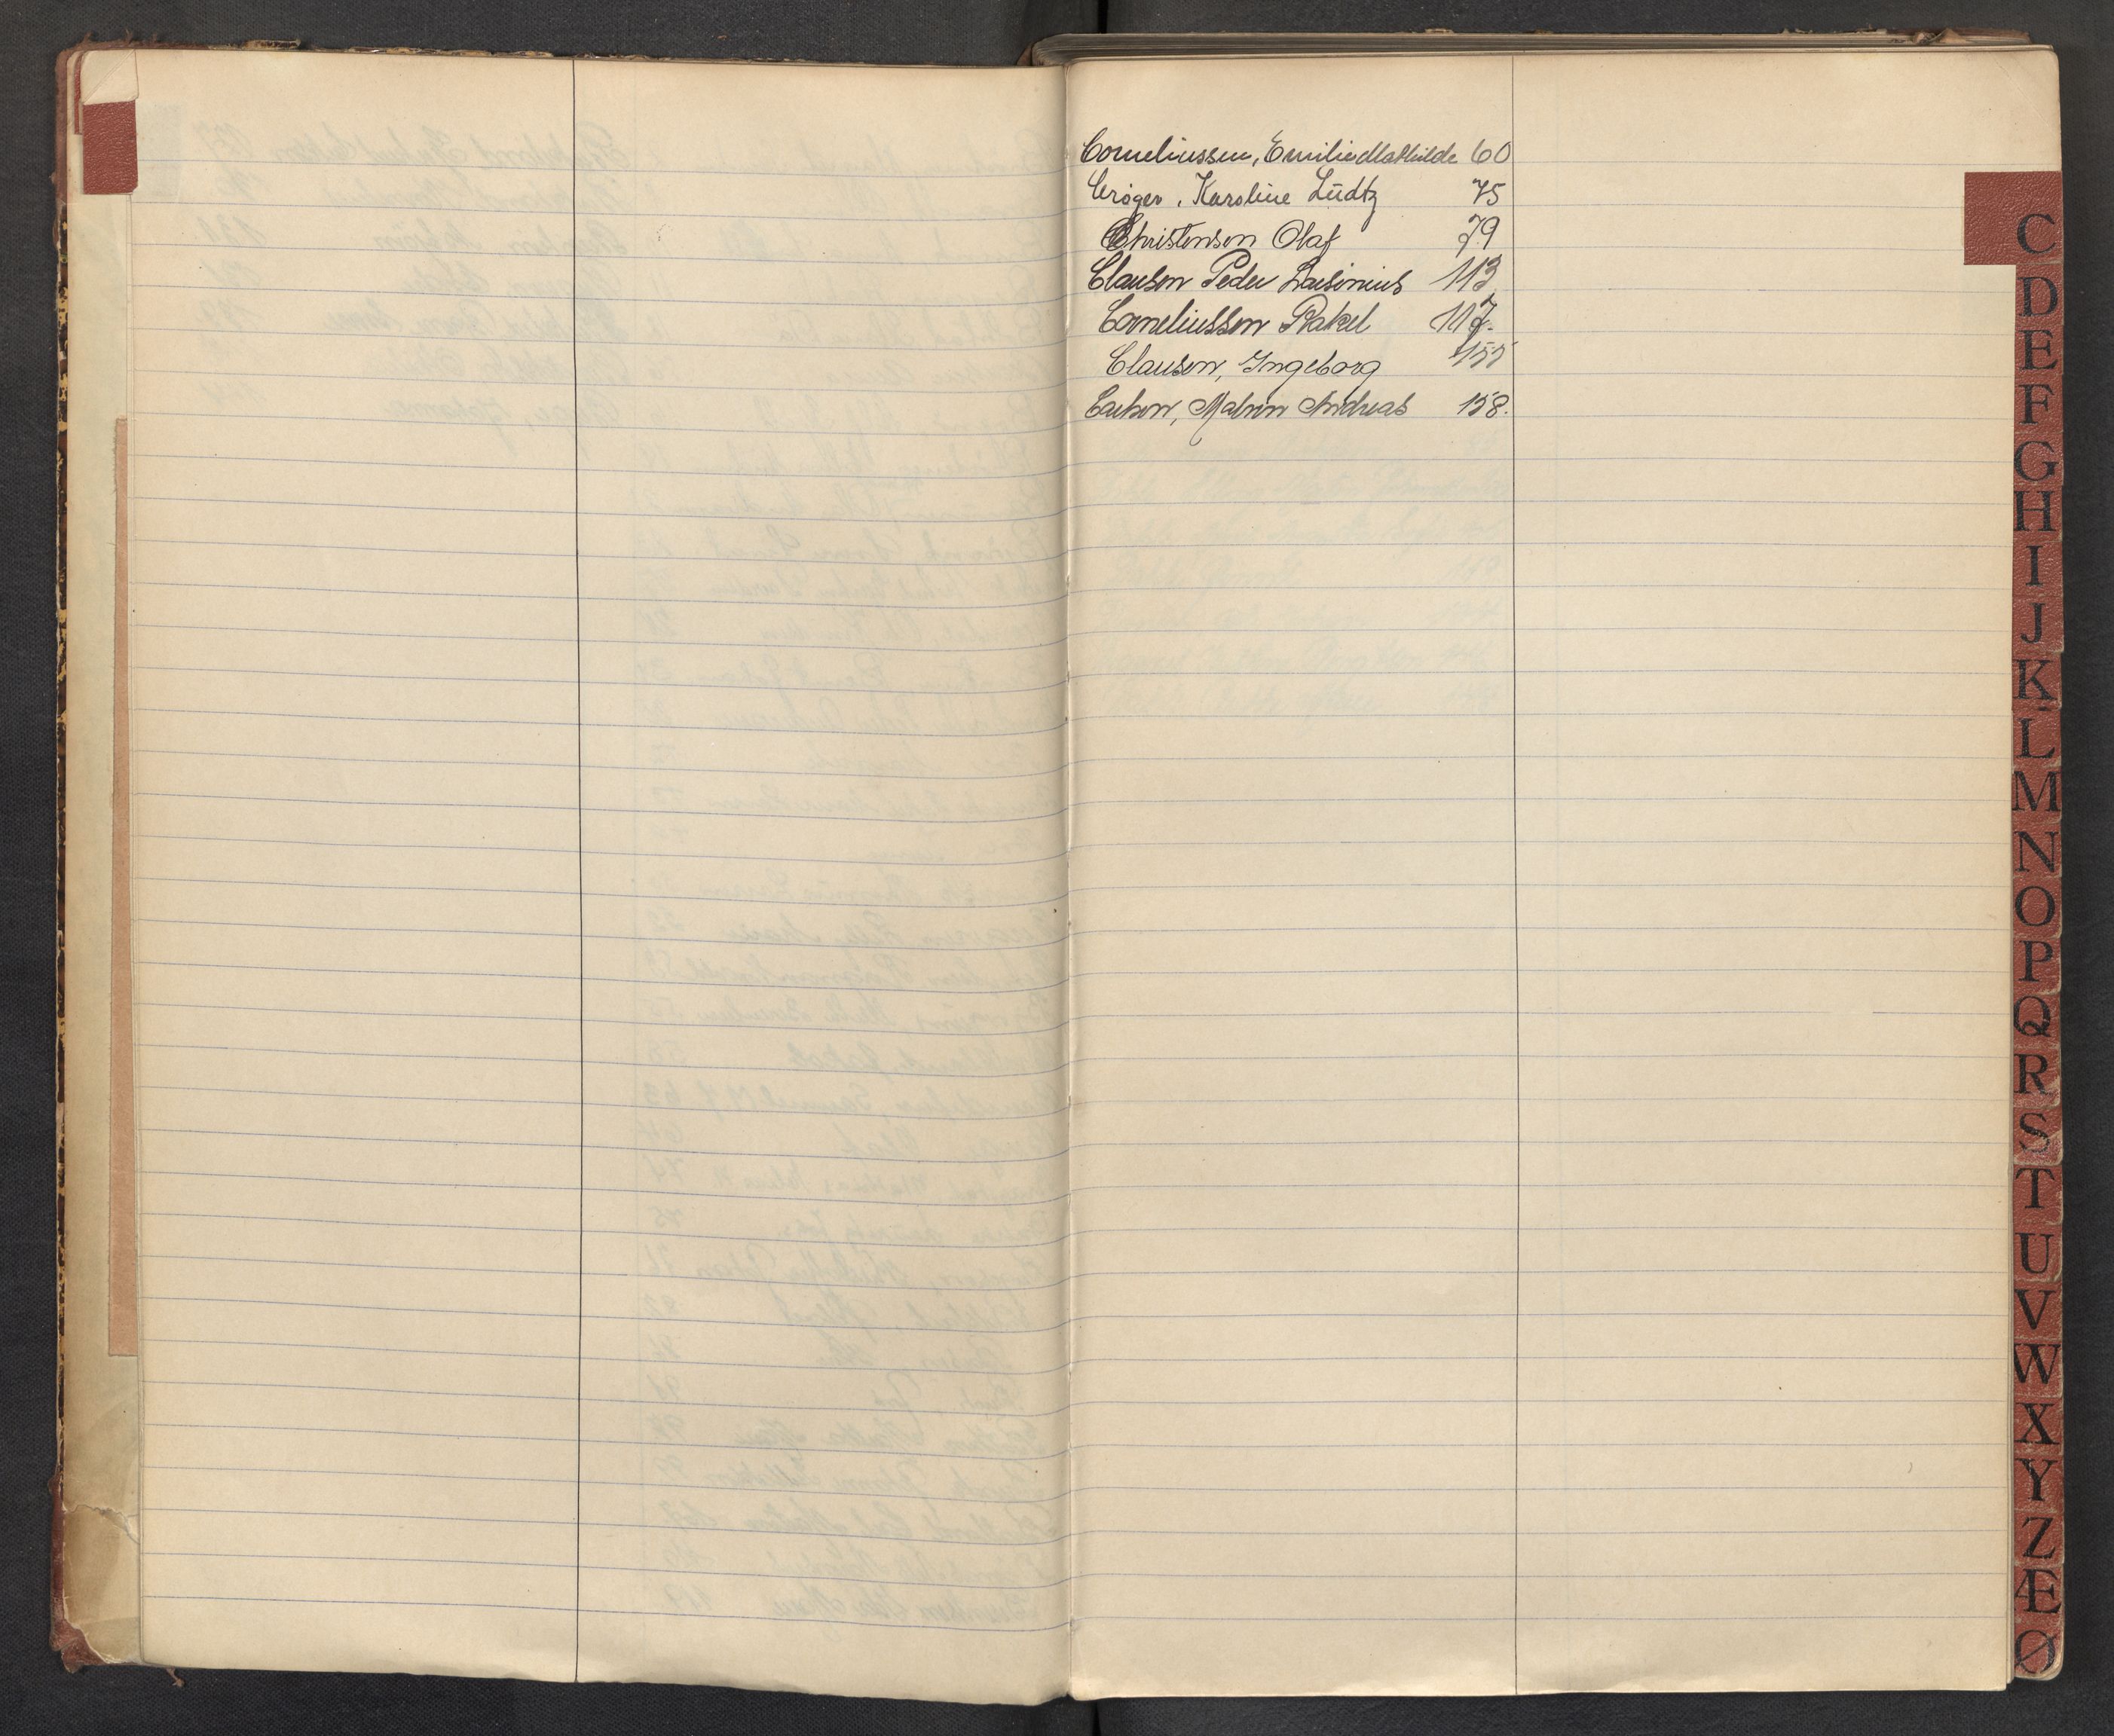 Corneliussen, Emilie Mathilde 60
Crøger, Karoline Lüdtz 75
Christensen Olaf 79
Clausen Peder 113
Corneliussen Rakel 117.
Clausen, Ingeborg 155
Malvin Andreas 158.
C
D
E
F
G
H
I
J
K
L
M
N
O
P
Q
R
S
T
U
V
W
X
Y
Z
Æ
Ø